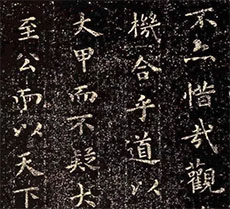 不亦惜哉觀
機合乎道以
大甲而不疑大
至公而以天下